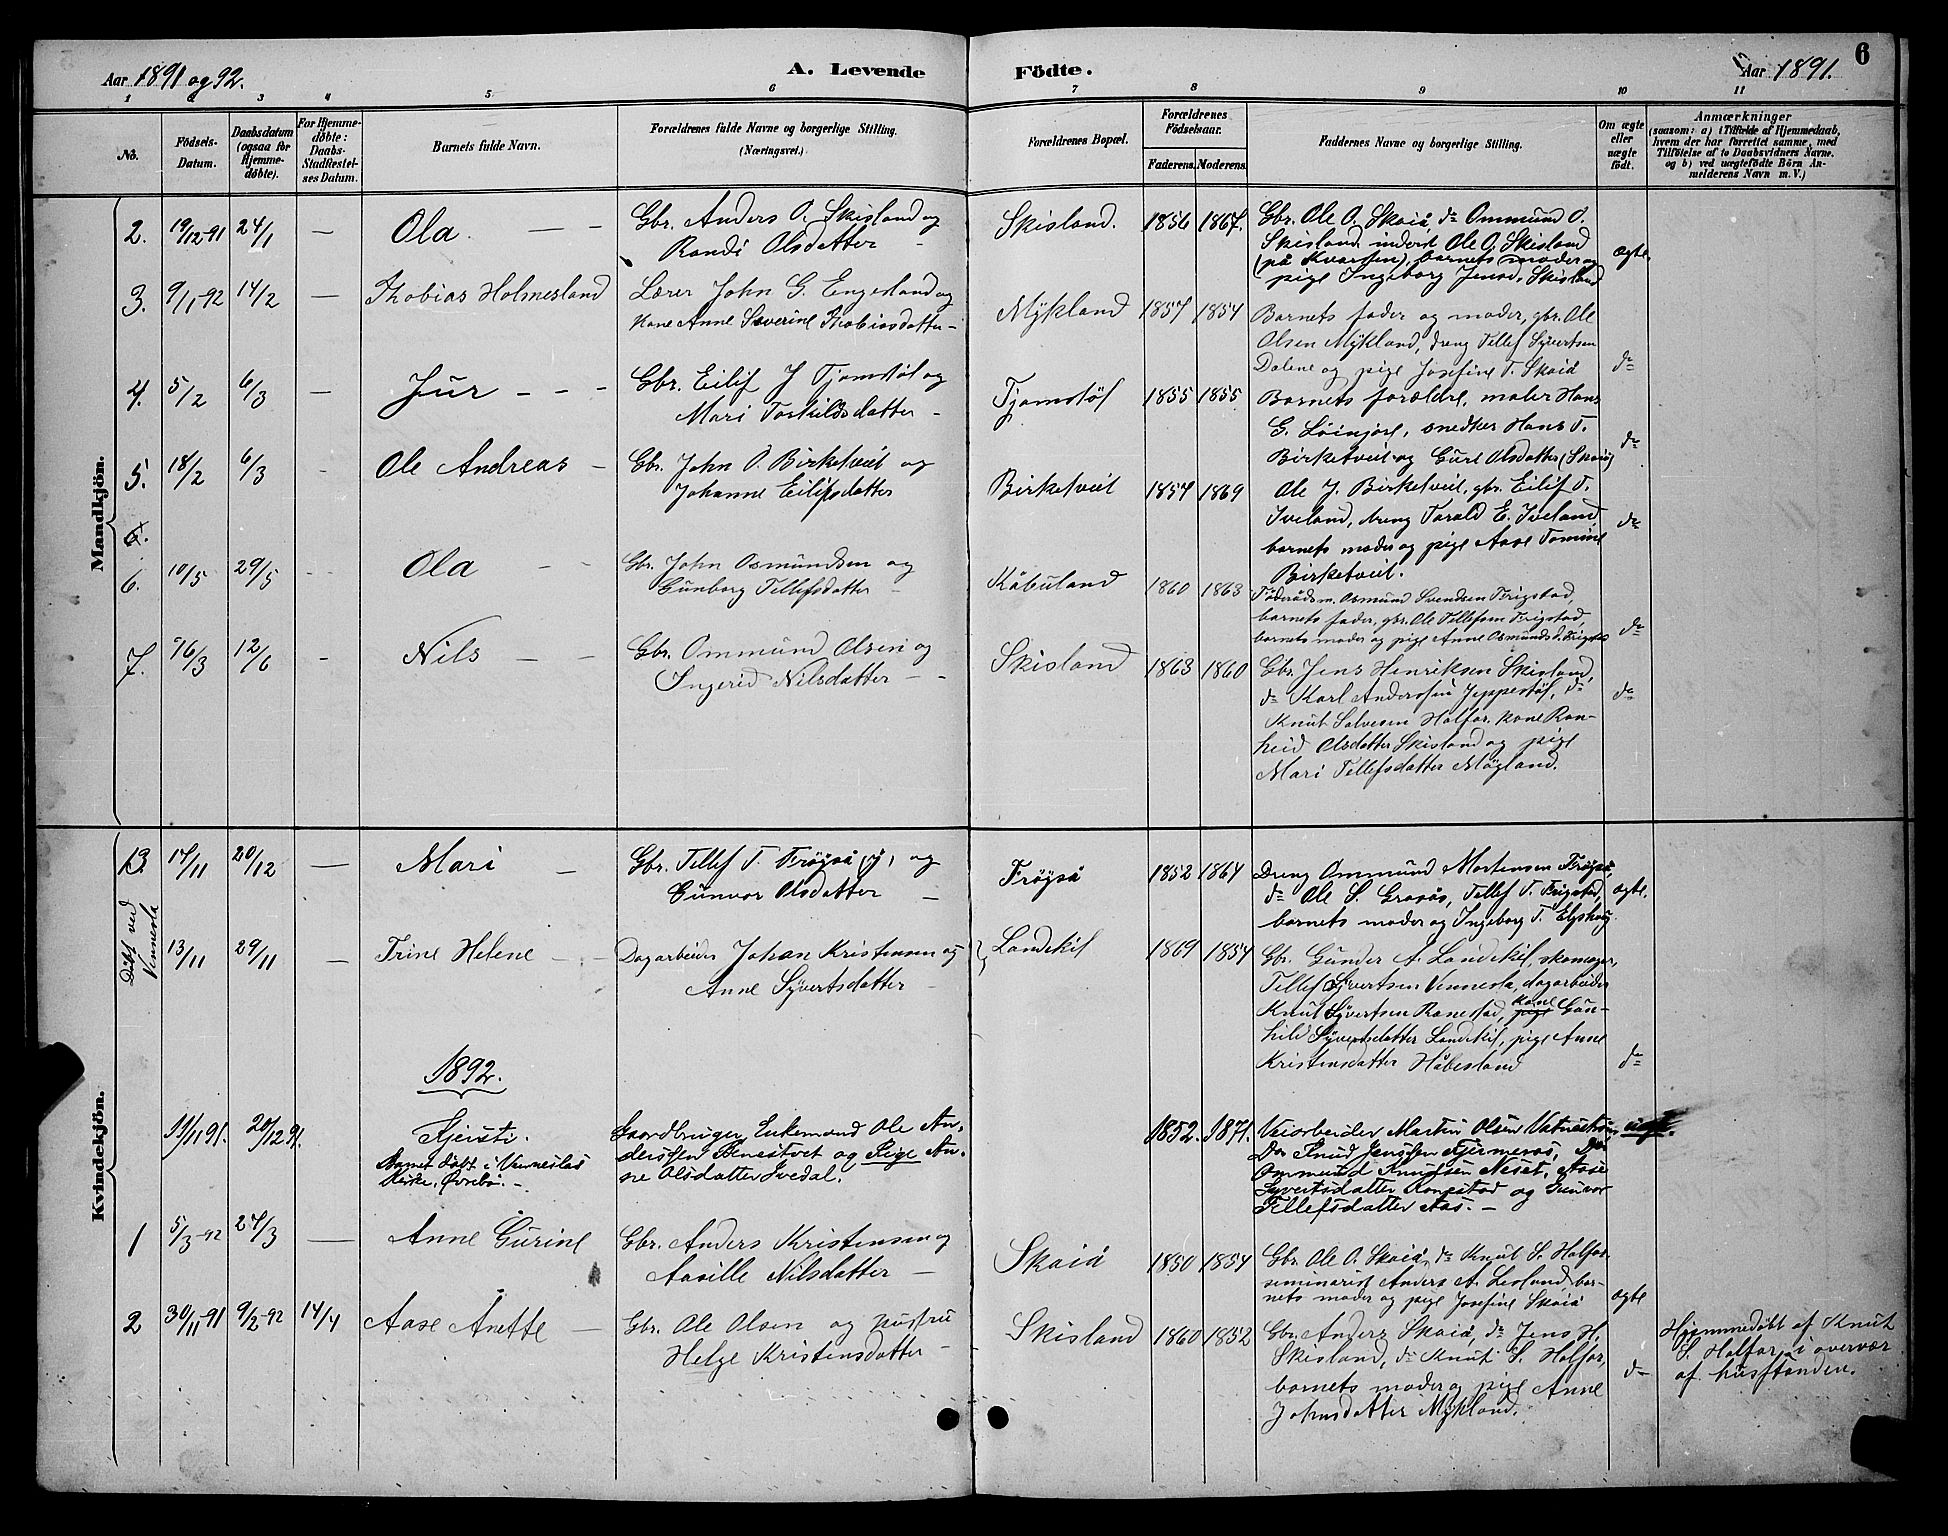 6
Aar 1891 og 92.
A. Levende Födte.
Aar 1891.
1 2 3 4 5 6 7 8 9 10 11
No.
Födsels-Datum.
Daabsdatum (ogsaa for Hjemme-döbte).
For Hjemme-döbte: Daabs-Stadfæstel-ses Datum.
Barnets fulde Navn.
Forældrenes fulde Navne og borgerlige Stilling. (Næringsvei.)
Forældrenes Bopæl.
Forældrenes Födselsaar.
Faderens. Moderens.
Faddernes Navne og borgerlige Stilling.
Om ægte eller uægte födt.
Anmærkninger
(saasom: a) i Tilfælde af Hjemmedaab,
hvem der har forrettet samme, med
Tilföielse af to Daabsvidners Navne.
og b) ved uægtefödte Börn An-
melderens Navn m. V.)
Mandkjön.
2. 19/12-91 24/1 — Ola. — —
Gbr. Anders O. Skisland og
Randi Olsdatter —
Skisland. 1856 1867.
Gbr. Ole O. Skaiå do Ommund O.
Skisland inderst Ole O. Skisland
(på Kvarsten), barnets moder og
pige Ingeborg Jensd. Skisland
ægte
3. 9/1-92 14/2 — Thobias Holmesland
Lærer John G. Engesland og
Kone Anne Severine Thobiasdatter —
Mykland 1857 1854
Barnets fader og moder, gbr. Ole
Olsen Mykland, dreng Tellef Syvertsen
Dalene og pige Josefine T. Skaiå
do
4. 5/2 6/3 — Jur — — —
Gbr. Eilif J Tjomstøl og
Mari Torkildsdatter —
Tjomstøl 1855 1855
Barnets forældre, maler Hans
G. Løinjore, snedker Hans T.
Birketveit og Guri Olsdatter (Skaiå)
do
5. 18/2 6/3 - Ole Andreas —
Gbr. John O. Birketveit og
Johanne Eilifsdatter
Birketveit 1857 1869
Ole J. Birketveit, gbr. Eilif T.
Iveland, dreng Torald E. Iveland
barnets moder og pige Aase Tomine
Birketveit.
do
6.
6. 10/5 29/5 - - Ola — —
Gbr. John Osmundsen og
Gunborg Tellefsdatter —
Kåbuland 1860 1863
Føderådsm. Osmund Svendsen Frigstad,
barnets fader, gbr. Ole Tellefsen Frigstad,
barnets moder og pige Anne Osmundsd. Frigstad
do
7. 26/3 12/6 - Nils — —
Gbr. Ommund Olsen og
Ingerid Nilsdatter — -
Skisland 1863 1860
Gbr. Jens Henriksen Skisland,
do Karl Anderssen Jeppestøl, do
Knut Salvesen Halfar. kone Ran-
heid Olsdatter Skisland og pige
Mari Tellefsdatter Møgland.
do
Kvindekjön.
13. 14/11 20/12 — Mari —
Gbr. Tellef T. Frøyså og
Gunvor Olsdatter —
Frøyså 1852 1864
Dreng Ommund Mortensen Frøyså,
do Ole S. Graaås, Tellef T. Frigstad,
barnets moder og Ingeborg T. Elgshaug.
ægte.
Døbt ved Vennesla
13/11 29/11 — Trine Helene — -
Dagarbeider Johan Kristensen og
Anne Syvertsdatter —
Landekil 1869 1854
Gbr. Gunder A. Landekil, skomager,
Tellef Syvertsen Vennesla, dagarbeider
Knut Syvertsen Ranestad, pige kone Gun-
hild Syvertsdatter Landekil, pige Anne
Kristensdatter Håbesland
do
1892.
19/11 91. 20/12 91. Kjersti.
Barnet døbt i Vennesla
Kirke, Øvrebø. —
Gaardbruger Enkemand Ole An-
derssen Renestvet og Pige An-
ne Olsdatter Ivedal.
1852. 1871.
Veiarbeider Martin Olsen Vatnestrøm,
Do Knud Jenssen Kjermeraas, Do
Ommund Knudsen Neset, Aase
Syvertsdatter Ranestad og Gunvor
Tellefsdatter Aas. —
uægte.
1 5/3-92 27/3 — Anne Gurine
Gbr. Anders Kristensen og
Aasille Nilsdatter —
Skaiå 1850 1854
Gbr. Ole O. Skaiå, do Knut S. Halfar
seminarist Anders A. Lesland, bar-
nets moder og pige Josefine Skaiå
ægte
2 30/11-91 9/2-92 17/4 Aase Anette —
Gbr. Ole Olsen og hustru
Helge Kristensdatter —
Skisland 1860 1852
Gbr. Anders Skaiå, do Jens H.
Skisland, do Knut S. Halfar,
barnets moder og pige Anne
Johnsdatter Mykland.
do
Hjemmedøbt af Knut
S. Halfar i overvær
af husstanden.